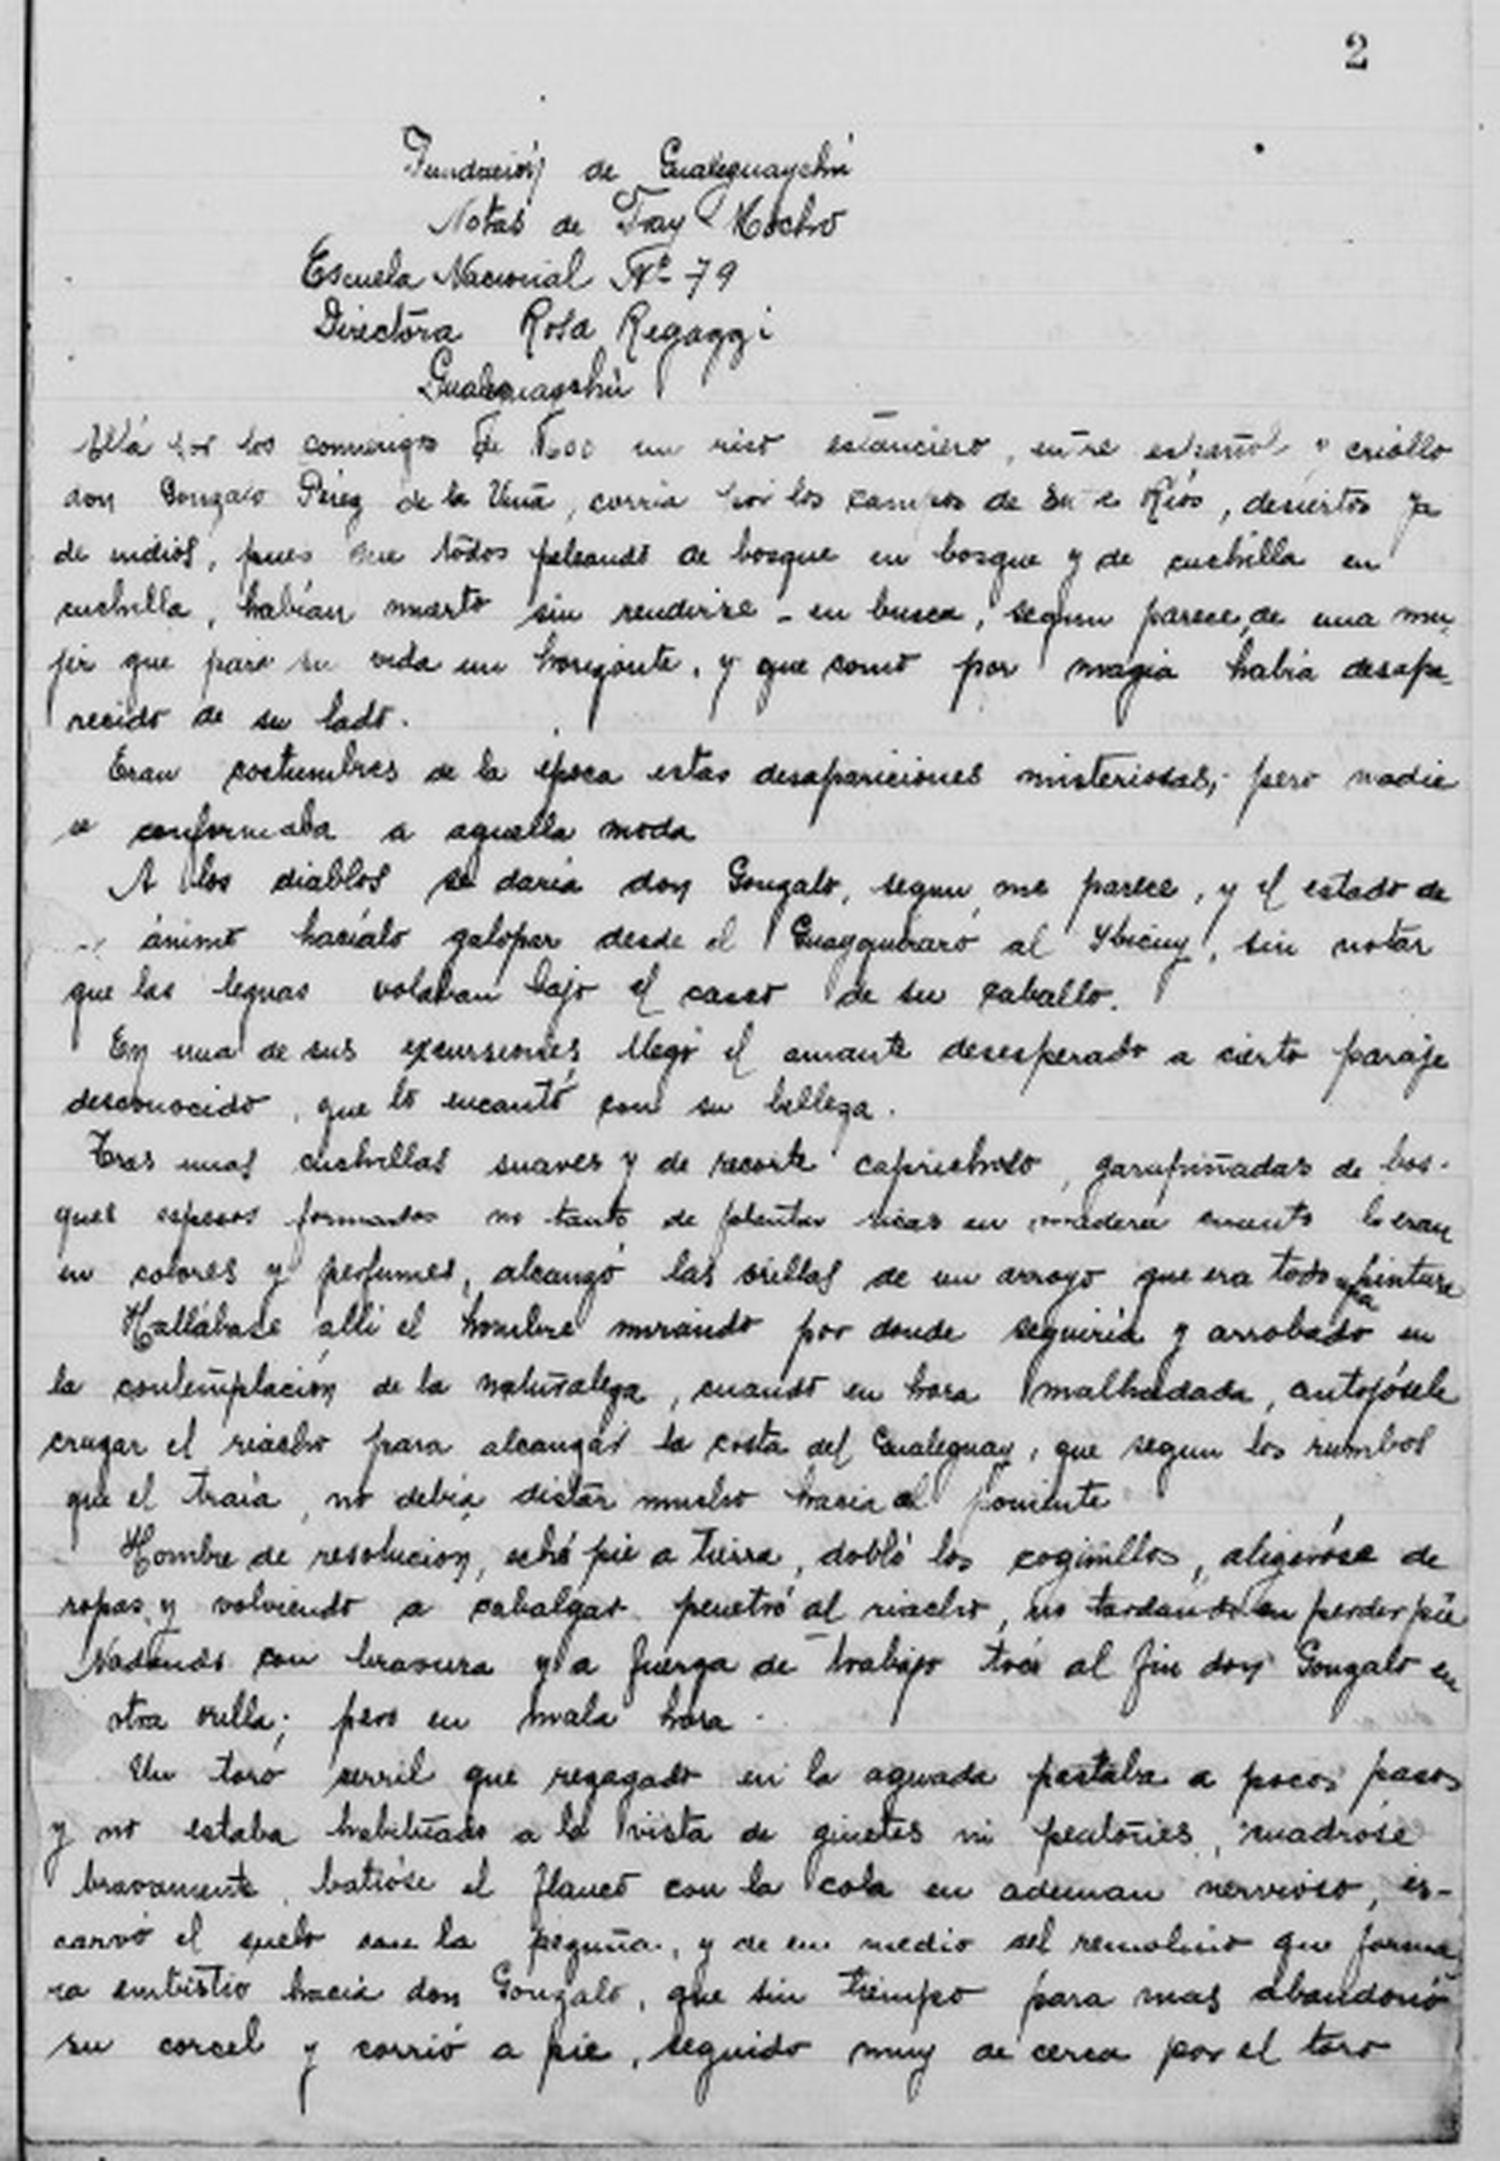 2
Fundación de Gualeguaychú
Notas de Fray Mocho
Escuela Nacional Nº 79
Directora Rosa Regazzi
Gualeguaychú
Allá por los comienzos de 1600 un rico estanciero, entre español y criollo
don Gonzalo Pérez de la Viña, corría por los campos de Entre Ríos, desiertos ya
de indios, pues que todos peleando de bosque en bosque y de cuchilla en
cuchilla, habían muerto sin rendirse - en busca, segun parece, de una mu-
jer que para su vida un horizonte, y que como por magia había desapa-
recido de su lado.
Eran costumbres de la época estas desapariciones misteriosas, pero nadie
se conformaba a aquella moda
A los diablos se daría don Gonzalo, segun me parece, y el estado de
ánimo hacíalo galopar desde el Guayquiraró al Ybicuy, sin notar
que las leguas volaban bajo el casco de su caballo.
En una de sus excursiones llegó el amante desesperado a cierto paraje
desconocido, que lo encantó con su belleza.
Tras unas cuchillas suaves y de recorte caprichoso, garapiñadas de bos-
ques espesos formados no tanto de plantas ricas en madera cuanto lo eran
en colores y perfumes, alcanzó las orillas de un arroyo que era todo una pintura
Hallábase allí el hombre mirando por donde seguiría y arrobado en
la contemplación de la naturaleza, cuando en hora malhadada, antojósele
cruzar el riacho para alcanzar la costa del Gualeguay, que segun los rumbos
que el traía, no debía distar mucho hacia el poniente
Hombre de resolución, echó pie a tierra, dobló los coginillos, aligeróse de
ropas y volviendo a cabalgar penetró al riacho, no tardando en perder pie
Nadando con bravura y a fuerza de trabajo tocó al fin don Gonzalo en
otra orilla; pero en mala hora.
Un toro cerril que rezagado en la aguada pastaba a pocos pasos
y no estaba habituado a la vista de ginetes ni peatones, cuadróse
bravamente, batióse el flanco con la cola en ademan nervioso, es-
carvó el suelo con la pezuña, y de en medio del remolino que forma-
ra embistio hacia don Gonzalo, que sin tiempo para mas abandonó
su corcel y corrió a pie, seguido muy de cerca por el toro